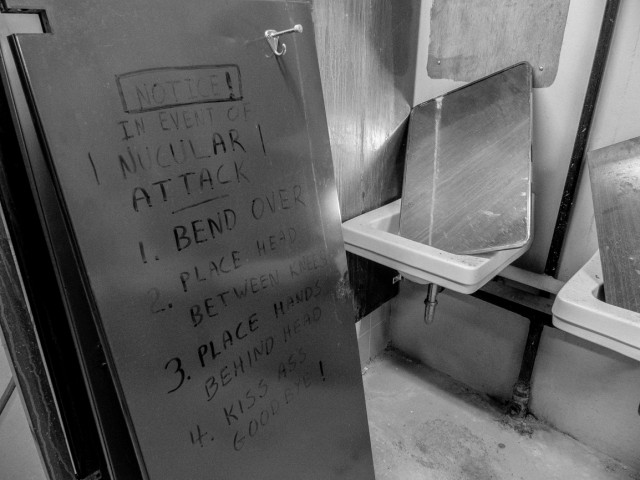 NOTICE!
IN EVENT OF
NUCULAR
ATTACK
1. BEND OVER
2. PLACE HEAD
BETWEEN KNEES
3. PLACE HANDS
BEHIND HEAD
4. KISS ASS
GOODBYE!